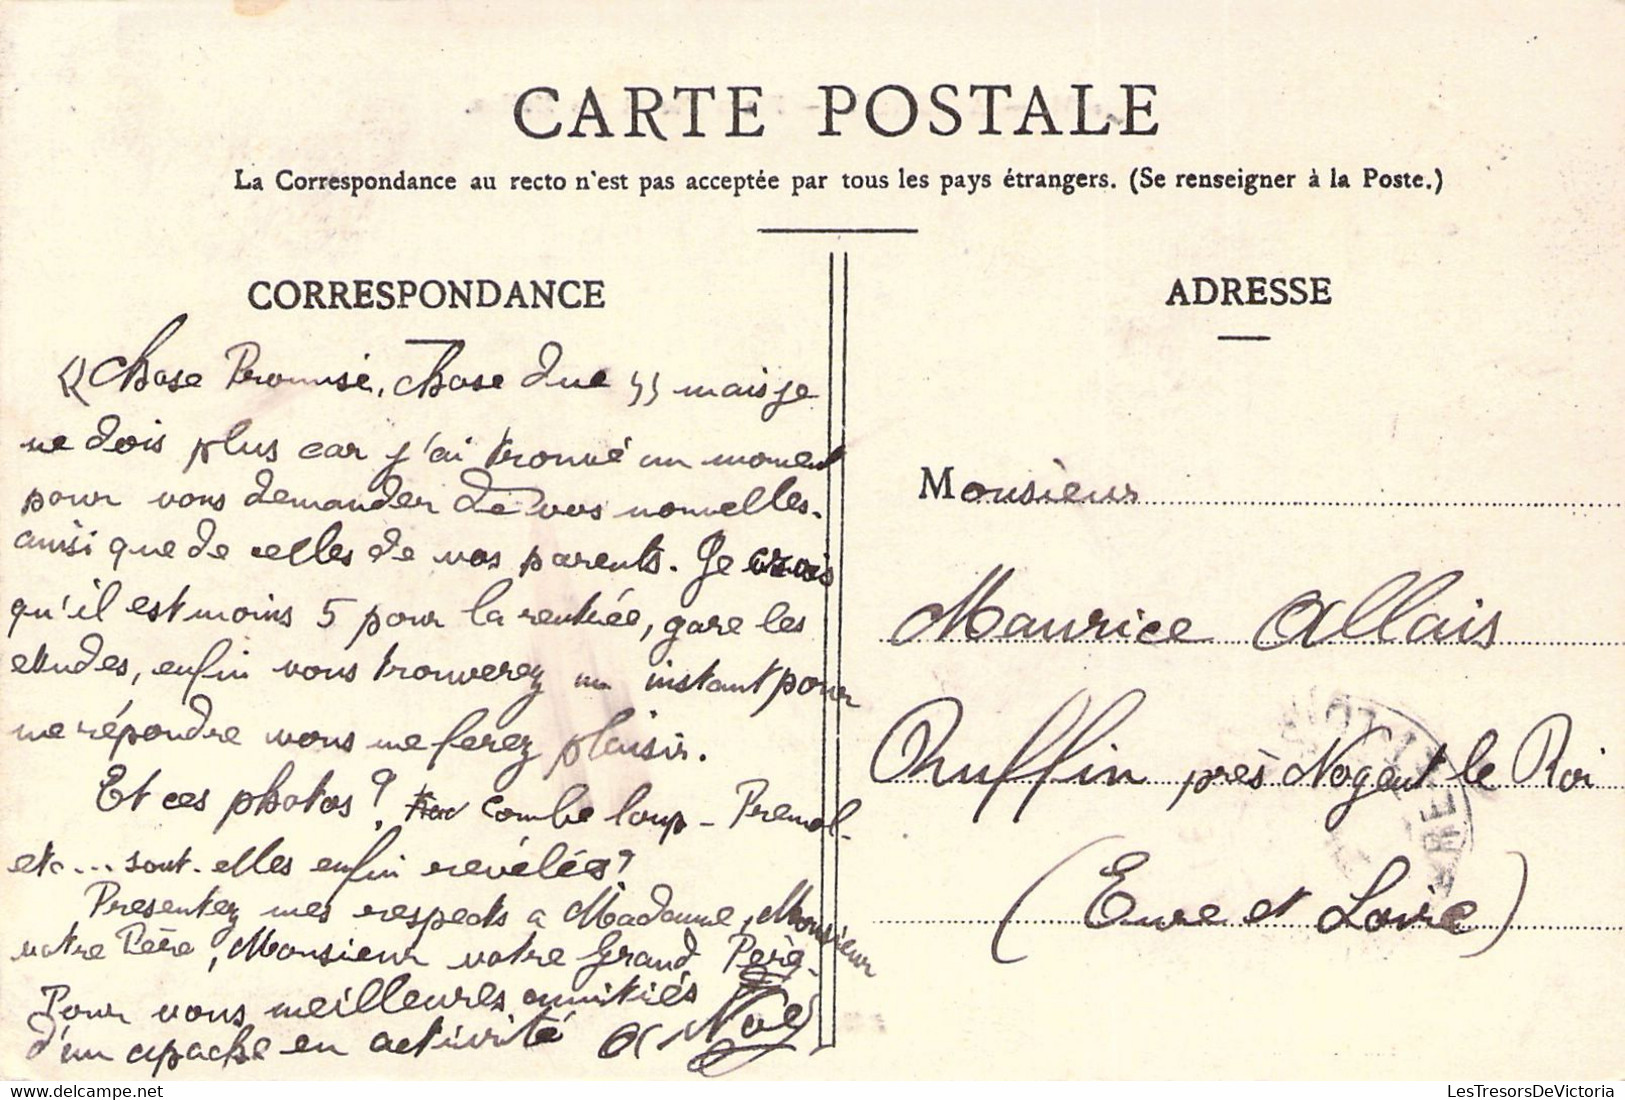 CARTE POSTALE
La Correspondance au recto n'est pas acceptée par tous les pays étrangers. (Se renseigner à la Poste.)
CORRESPONDANCE
« Chose Promise, chose due » mais je
ne dois plus car j'ai trouvé un moment
pour vous demander de vos nouvelles.
ainsi que de celles de vos parents. Je crois
qu'il est moins 5 pour la rentrée, gare les
etudes, enfin vous trouverez un instant pour
me répondre vous me ferez plaisir.
Et ces photos? Combe loup - Premol-
etc... sont-elles enfin revélées?
Presentez mes respects a Madame, Monsieur
votre Père, Monsieur votre Grand Père-
Pour vous meilleures amitiés
d'un apache en activité
ADRESSE
Monsieur
Maurice Allais
Ruffin près Nogent le Roi
(Eure et Loire)
LesTresorsDeVictoria.com